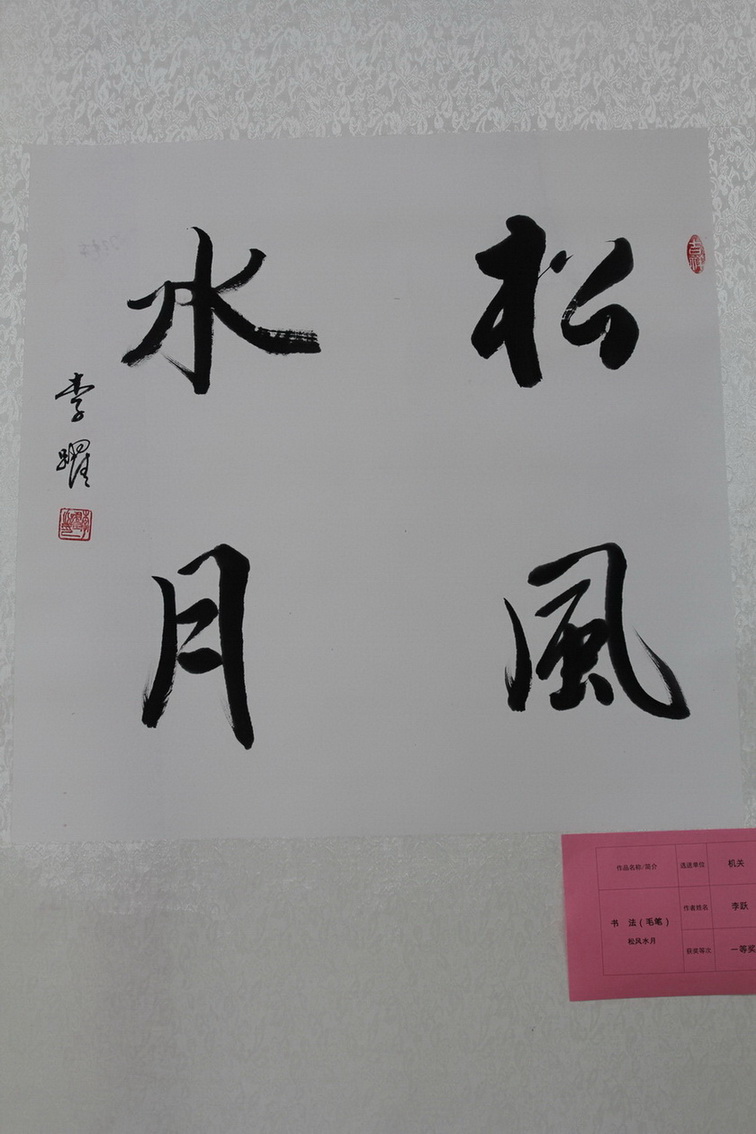 松風
水月
李躍
吉祥
作品名称/简介 选送单位 机关
书 法（毛笔） 作者姓名 李跃
松风水月
获奖等次 一等奖